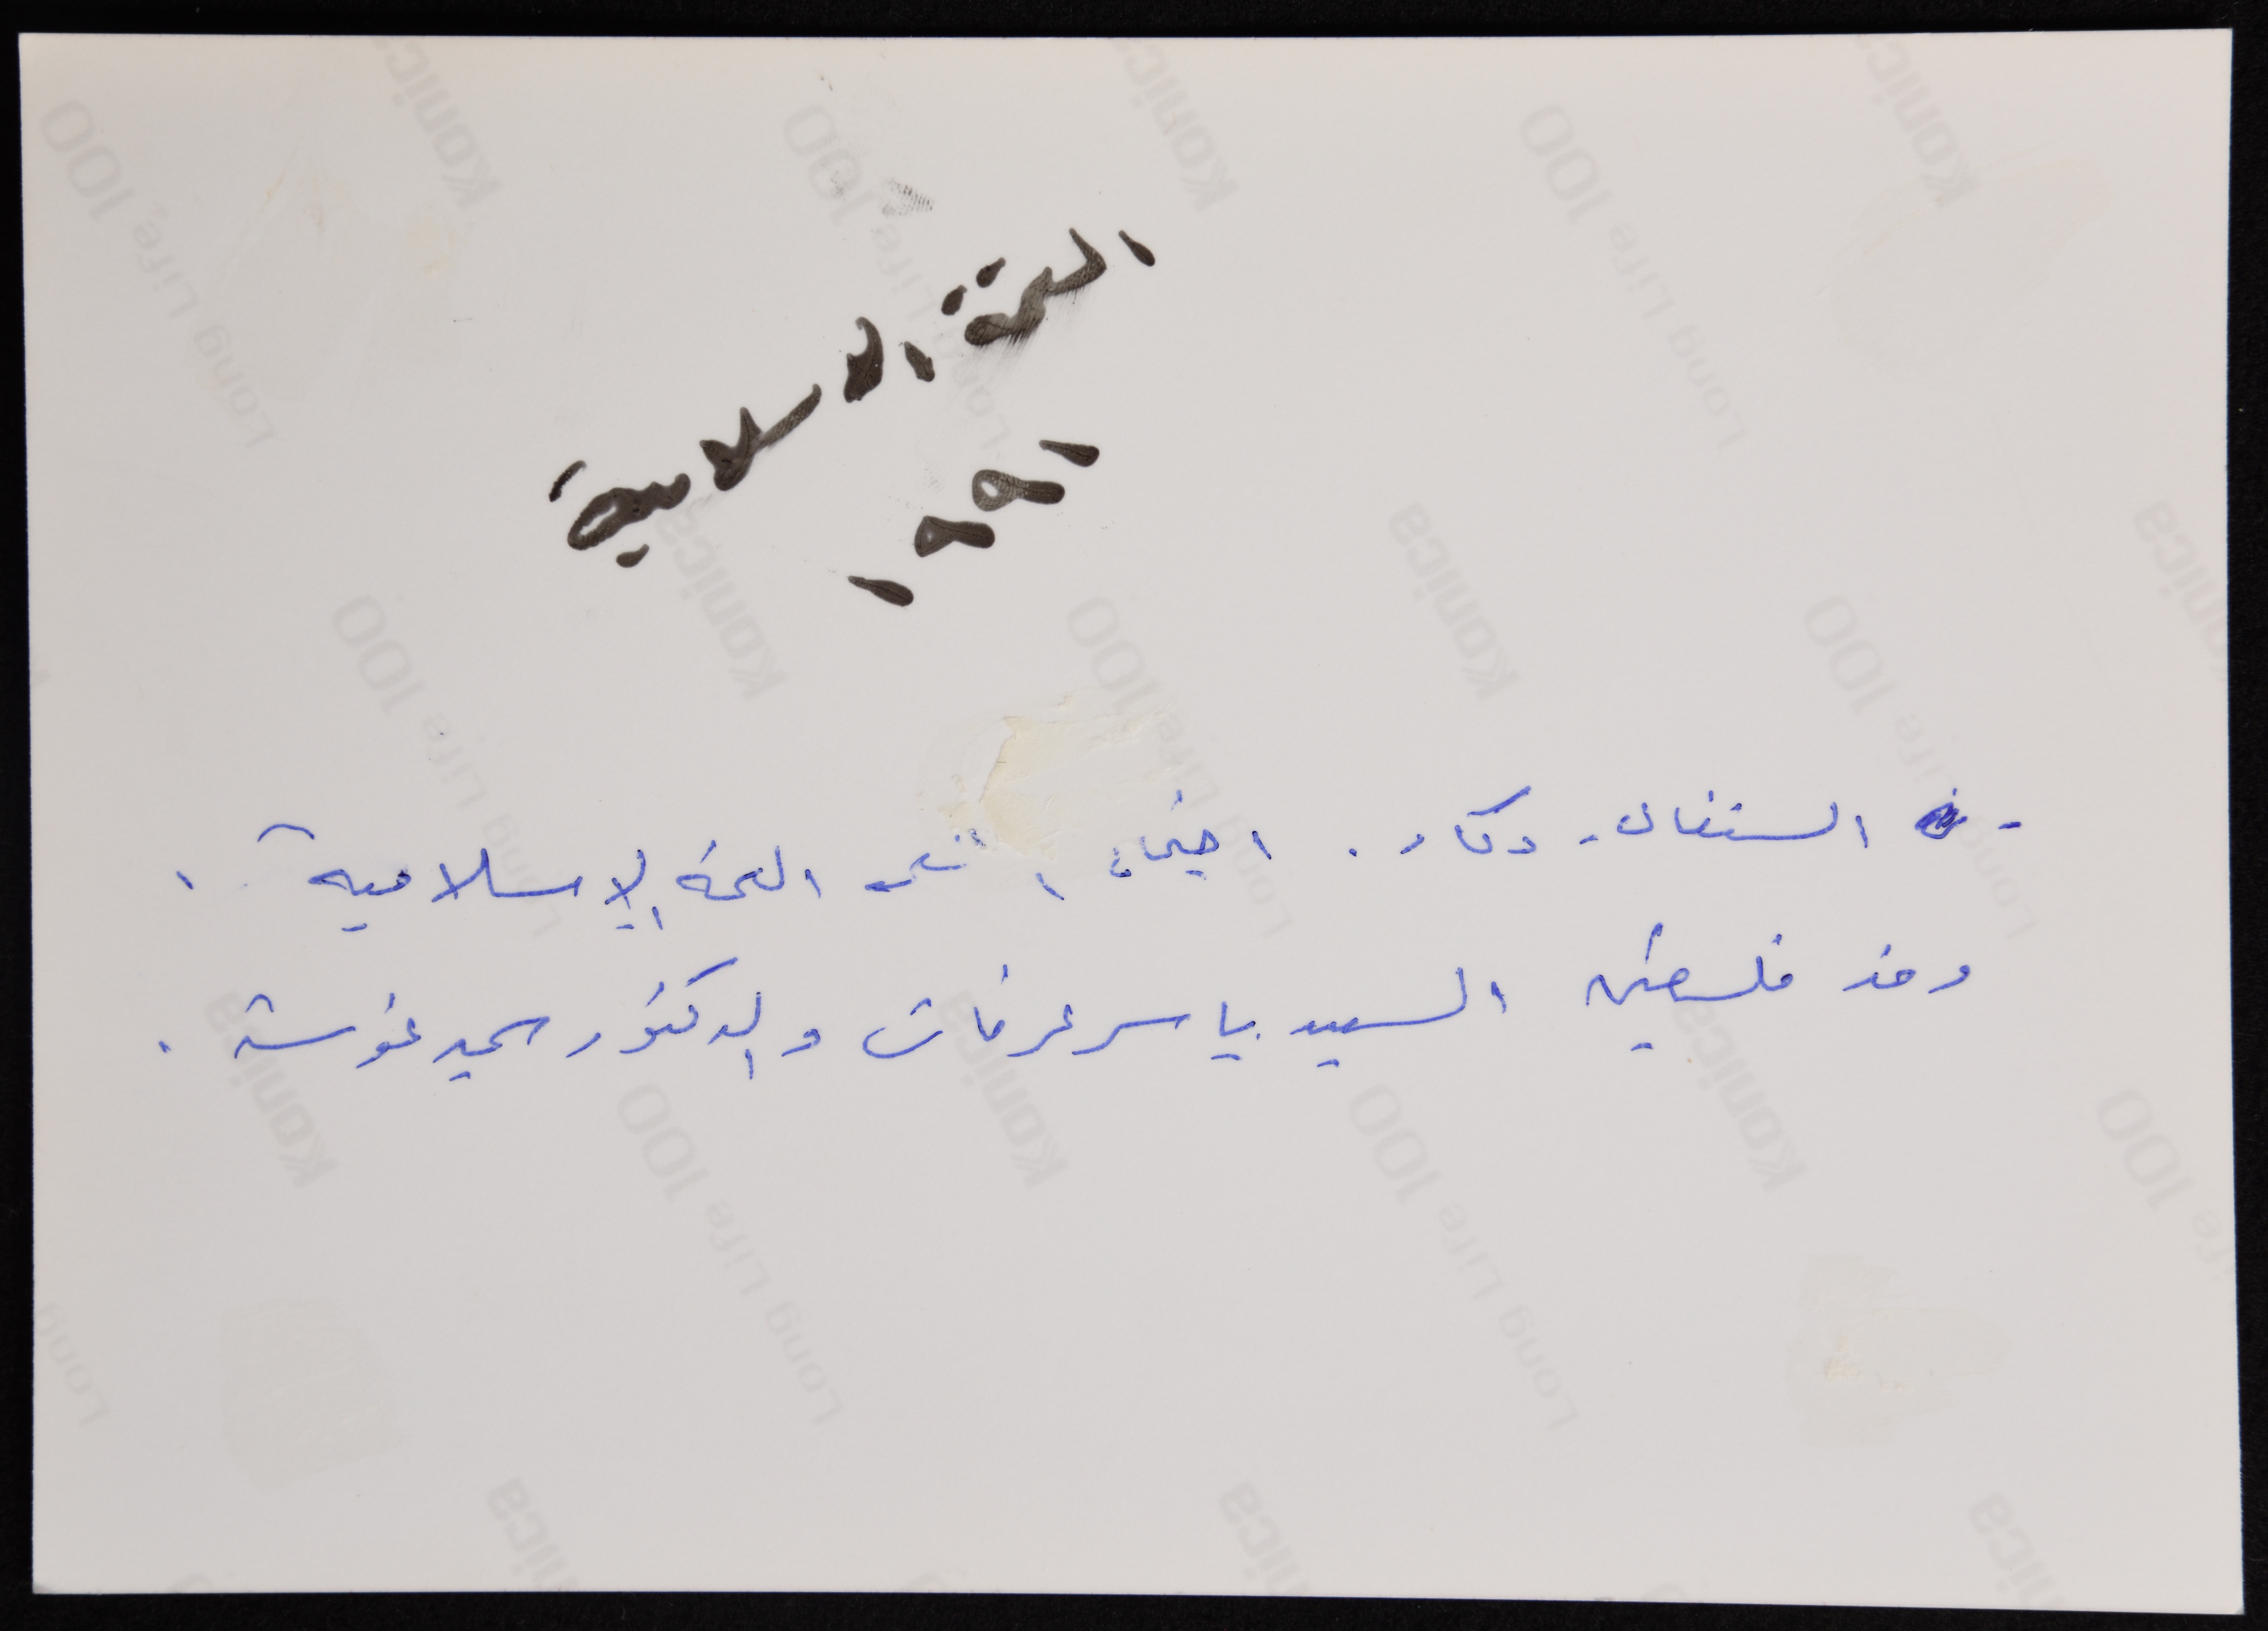 القمة الاسلامية
١٩٩١
- السنغال - دكار . اجتماع القمة الإسلامية .
وفد فلسطين السيد ياسر عرفات والدكتور سميح غوشة .
Konica
Long Life 100